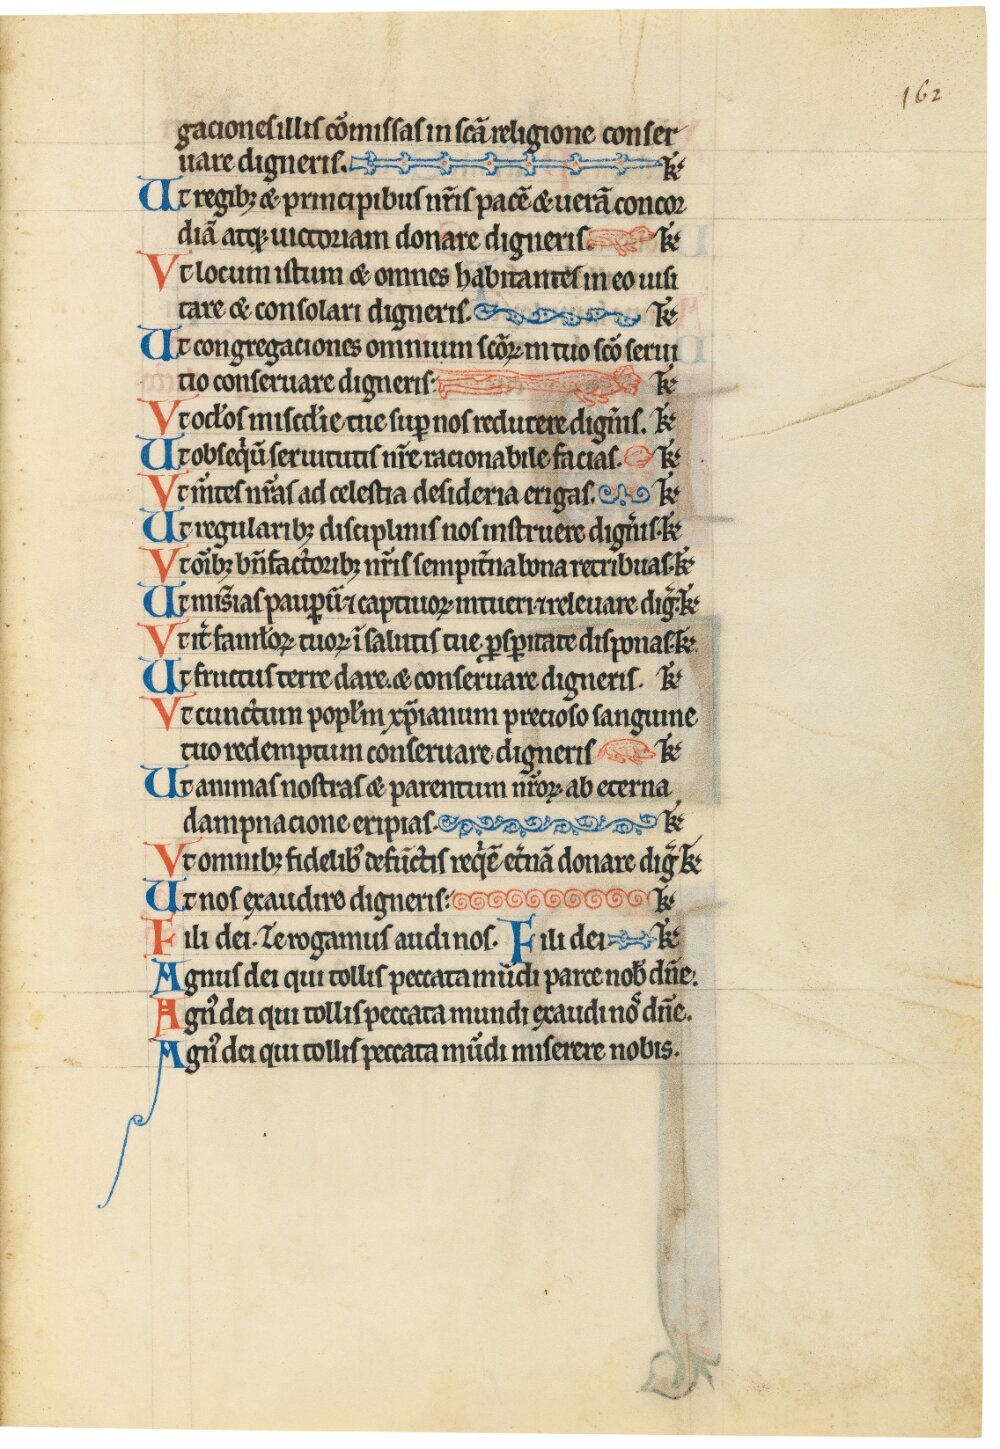 162
gaciones illis cõmissas in scã religione conser
uare digneris. k̃e
Ut regibꝫ & principibus nr̃is pacẽ & uerã concor
diã atqꝫ uictoriam donare digneris. k̃e
Vt locum istum & omnes habitantes in eo uisi
tare & consolari digneris. k̃e
Ut congregaciones omnium scõꝝ in tuo scõ serui
tio conseruare digneris. k̃e
Vt oc̃los misc̃die tue sup nos reducere dign̾is. k̃e
Ut obseq̾ũ seruitutis nr̃e racionabile facias. k̃e
Vt m̃tes nr̃as ad celestia desideria erigas. k̃e
Ut regularibꝫ disciplinis nos instruere dign̾is. k̃e
Vt õibꝫ bñfactoribꝫ nr̃is sempit̾na bona retribuas. k̃e
Ut mis̾ias paupꝝũ ⁊ captiuoꝝ intueri ⁊ releuare dig̾. k̃e
Vt it̾ famloꝝ tuoꝝ ĩ salutis tue ꝓspitate disponas. k̃e
Ut fructus terre dare & conseruare digneris. k̃e
Vt cunctum popl̃m xp̃ianum precioso sanguine
tuo redemptum conseruare digneris k̃e
Ut animas nostras & parentum nr̃oꝝ ab eterna
dampnacione eripias. k̃e
Vt omnibꝫ fidelibꝰ defũctis req̾ẽ et̾nã donare dig̾ k̃e
Ut nos exaudire digneris: k̃e
Fili dei. Te rogamus audi nos. Fili dei k̃e
Agnus dei qui tollis peccata mũdi parce nob̾ dñe.
Agnꝰ dei qui tollis peccata mundi exaudi nõ dñe.
Agnꝰ dei qui tollis peccata mũdi miserere nobis.